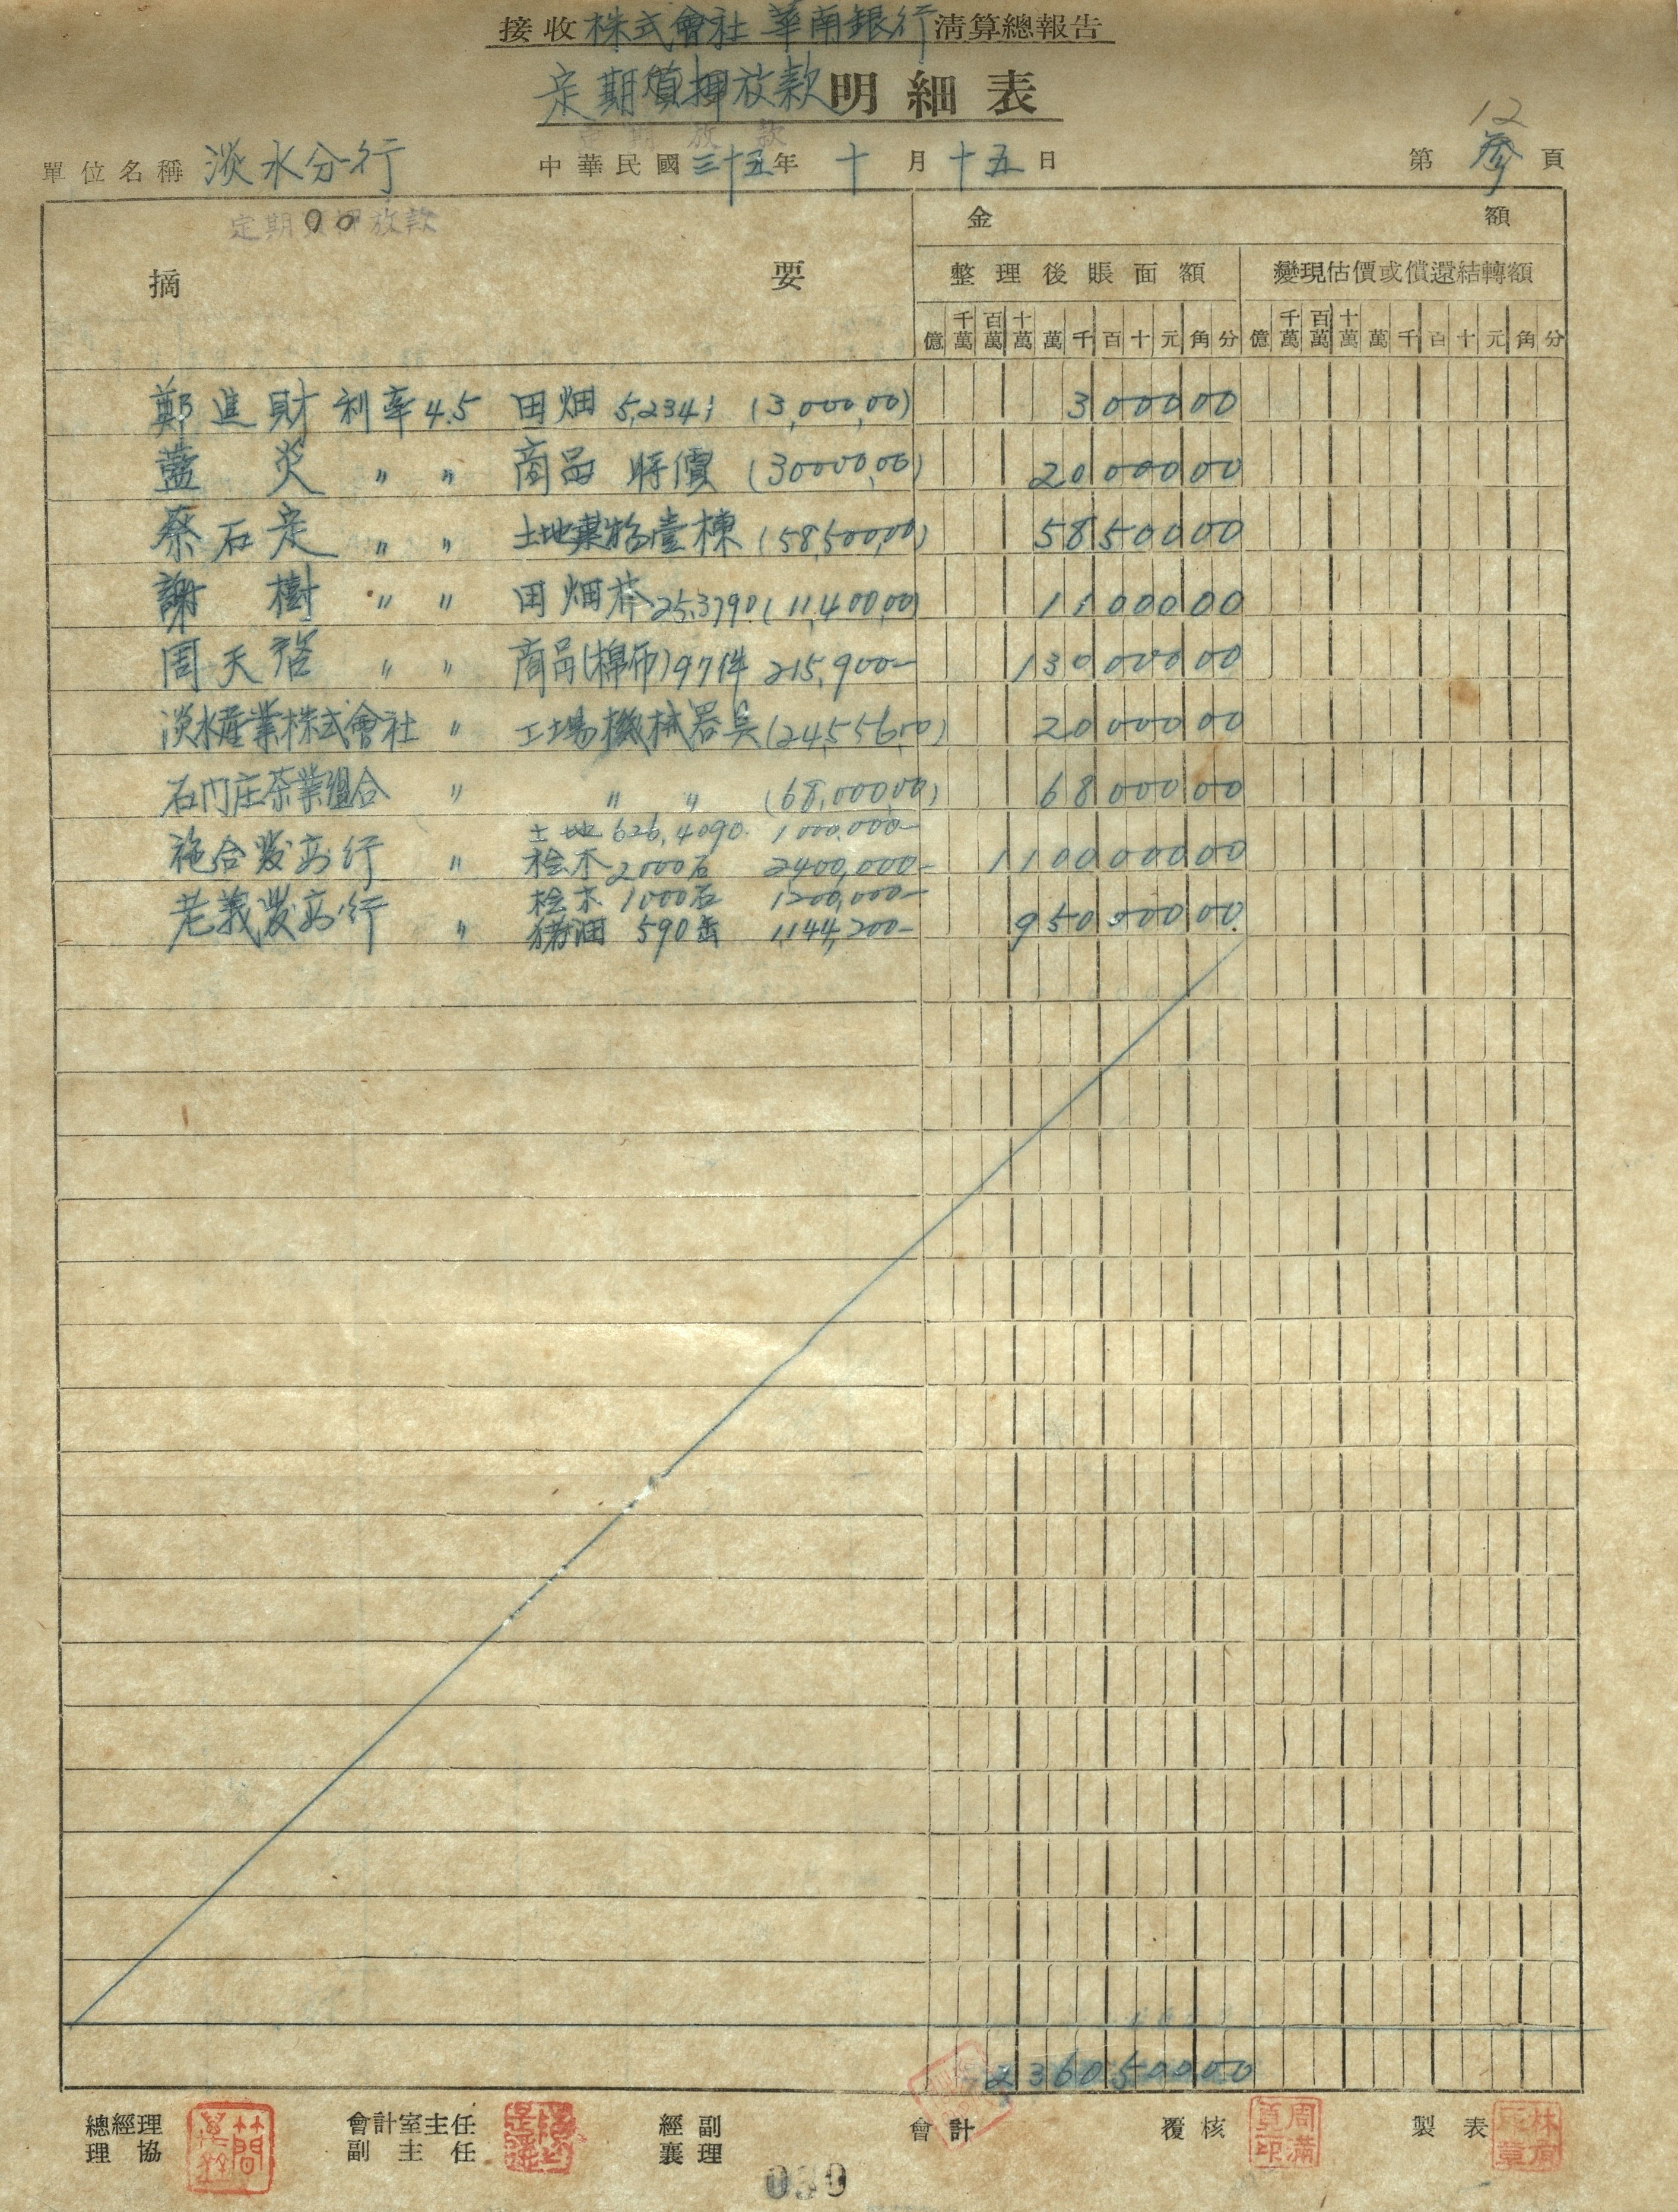 接收株式會社華南銀行清算總報告
定期質押放款明細表
12
單位名稱 淡水分行 中華民國三十五年十月十五日 第參頁
定期質押放款
摘要 金額
整理後賬面額 變現估價或償還結轉額
億 千萬 百萬 十萬 萬 千 百 十 元 角 分 億 千萬 百萬 十萬 萬 千 百 十 元 角 分
鄭進財 利率4.5 田畑 5,234 (3,000,00) 3000 00
藍炎 〃 〃 商品 時價 (30000,00) 20000 00
蔡石定 〃 〃 土地業物壹棟 (58,500,00) 58500 00
謝樹 〃 〃 田畑茶 25,3790 (11,400,00) 11000 00
周天啓 〃 〃 商品(棉布)97件 215,900- 130000 00
淡水産業株式會社 〃 工場機械器具 (24,556,00) 20000 00
石門庄茶業組合 〃 〃 〃 (68,000,00) 68000 00
土地 626,4090. 1000,000-
施合發商行 〃 桧木 2000石 2400,000- 1100000 00
桧木 1000石 1200,000-
老義發商行 〃 猪油 590缶 1,144,200- 950000 00
2360500 00
總經理 會計室主任 經副 會計 覆核 製表
理協 副主任 襄理
周滿
039